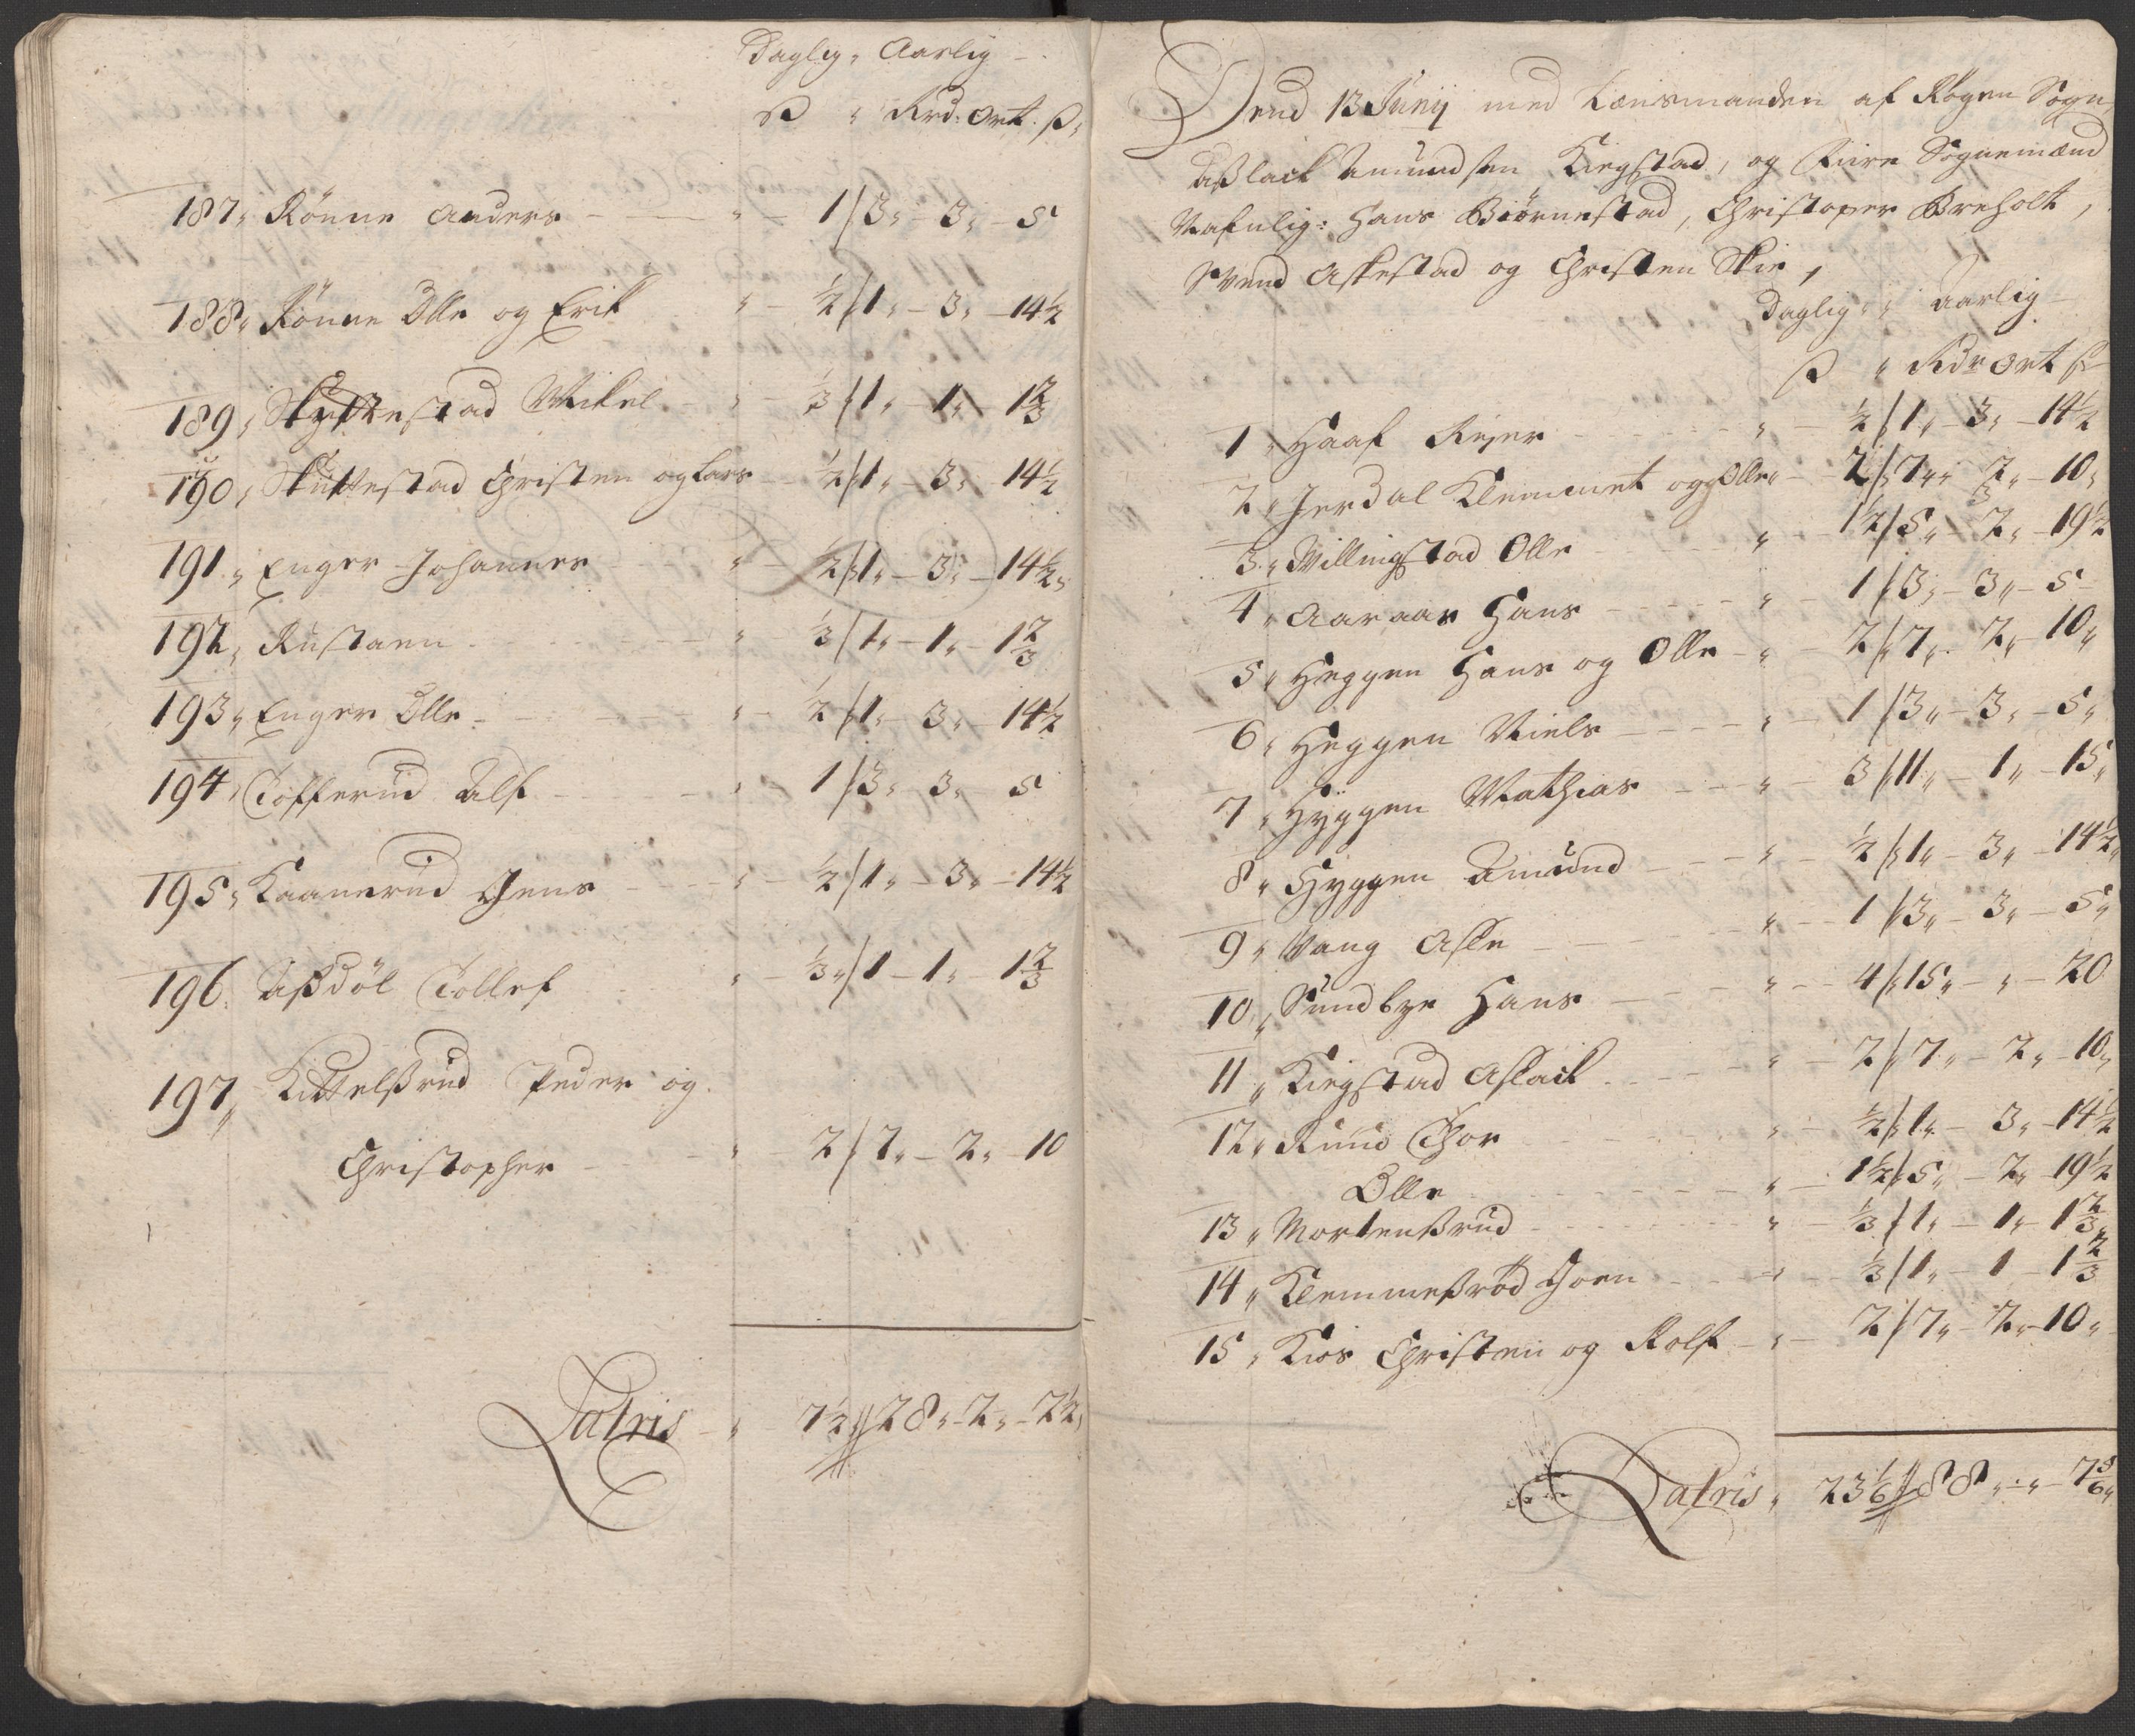 Daglig „ Aarlig
ß „ Rd: Ort. ß„
187„ Rönne Anders „ 1/3„ 3„ 5
188„ Rönne Olle og Erik „ ½/1„ 3„ 14½
189„ Skyttestad Mikel „ ⅓/1„ 1„ 1⅔
190„ Skÿttestad Christen og Lars ½/1„ 3„ 14½
191„ Enger Johannes „ ½/1„ 3„ 14½„
192„ Rustaen „ ⅓/1„ 1„ 1⅔
193„ Enger Olle „ ½/1„ 3„ 14½
194„ Tofferud Alf „ 1/3„ 3„ 5
195„ Kaanerud Jens „ ½/1„ 3„ 14½
196„ Aßdöl Tollef „ ⅓„/1 1„ 1⅔
197„ Kittelßrud Peder og
Christopher „ 2/7„ 2„ 10
Latris „ 7½//28„ 2„ 2½„
Dend 13 Junij med Lænsmanden af Rögen Sogn
Aßlack Amundsen Kiegstad, og Fiire Sognemænd
Nafnlig: Hans Biörnestad, Christoper Breholt,
Svend Askestad og Christen Skie,
Daglig „ Aarlig
ß „ Rdr Ort ß
1„ Haaf Rejer „ ½/1„ 3„ 14½
2„ Jerdal Klemmet og Olle „ 2/7„ 2„ 10„
3„ Villingstad Olle „ 1½/5„ 2„ 19½
4„ Aaraas Hans „ 1/3„ 3„ 5
5„ Heggen Hans og Olle „ 2/7„ 2„ 10„
6„ Heggen Niels „ 1/3„ 3„ 5„
7„ Hÿggen Mathias „ 3/11„ 1„ 15„
8„ Hyggen Amund „ ½/1„ 3„ 14½„
9„ Vang Asle „ 1/3„ 3„ 5„
10„ Sundbye Hans „ 4/15„ „ 20
11„ Kiegstad Aslack „ 2/7„ 2„ 10„
12„ Ruud Thor „ ½/1„ 3„ 14½
Olle „ 1½/5„ 2„ 19½
13„ Mortenßrud „ ⅓/1„ 1„ 1⅔„
14„ Klemmeßrød Joen „ ⅓/1„ 1 1⅔
15„ Kios Christen og Rolf „ 2/7„ 2„ 10„
Latris„ 23⅙//88„ „ 7⅚„